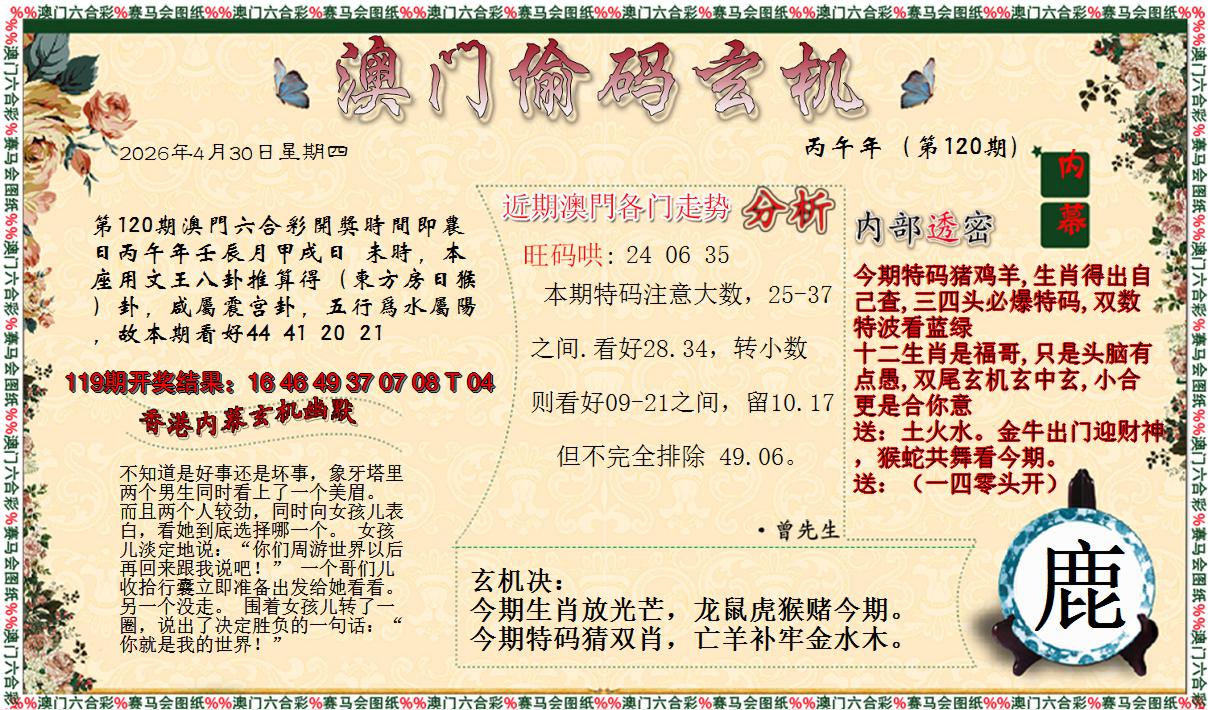 %%澳门六合彩%赛马会图纸%%澳门六合彩%赛马会图纸%%澳门六合彩%赛马会图纸%%澳门六合彩%赛马会图纸%%澳门六合彩%赛马会图纸%%澳门六合彩%赛马会图纸%%澳门六合彩%赛马会图纸%%
澳门偷码玄机
2026年4月30日星期四
丙午年（第120期）
内
幕
第120期澳門六合彩開獎時間即農
日丙午年壬辰月甲戌日 未時，本
座用文王八卦推算得（東方房日猴
）卦，咸屬震宫卦，五行爲水屬陽
，故本期看好44 41 20 21
119期开奖结果：16 46 49 37 07 08 T 04
香港内幕玄机幽默
不知道是好事还是坏事，象牙塔里
两个男生同时看上了一个美眉。
而且两个人较劲，同时向女孩儿表
白，看她到底选择哪一个。 女孩
儿淡定地说：“你们周游世界以后
再回来跟我说吧！” 一个哥们儿
收拾行囊立即准备出发给她看看。
另一个没走。 围着女孩儿转了一
圈，说出了决定胜负的一句话：“
你就是我的世界！”
近期澳門各门走势 分析
旺码哄: 24 06 35
本期特码注意大数，25-37
之间.看好28.34，转小数
则看好09-21之间，留10.17
但不完全排除 49.06。
·曾先生
内部透密
今期特码猪鸡羊,生肖得出自
己查,三四头必爆特码,双数
特波看蓝绿
十二生肖是福哥,只是头脑有
点愚,双尾玄机玄中玄,小合
更是合你意
送：土火水。金牛出门迎财神
，猴蛇共舞看今期。
送：（一四零头开）
玄机决：
今期生肖放光芒，龙鼠虎猴赌今期。
今期特码猜双肖，亡羊补牢金水木。
鹿
%%澳门六合彩%赛马会图纸%%澳门六合彩%赛马会图纸%%澳门六合彩%赛马会图纸%%澳门六合彩%赛马会图纸%%澳门六合彩%赛马会图纸%%澳门六合彩%赛马会图纸%%澳门六合彩%赛马会图纸%%